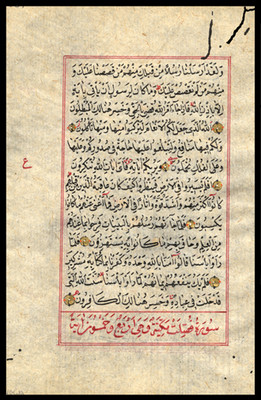 ولقد ارسلنا رسلا من قبلك منهم من قصصنا عليك و
منهم من لم نقصص عليك وما كان لرسول ان يأتي باية
الا باذن الله فاذا جاء امر الله قضي بالحق وخسر هنالك المبطلون
الله الذي جعل لكم الانعام لتركبوا منها ومنها تأكلون
ولكم فيها منافع ولتبلغوا عليها حاجة في صدوركم وعليها
وعلى الفلك تحملون ويريكم اياته فاي ايات الله تنكرون
ع
افلم يسيروا في الارض فينظروا كيف كان عاقبة الذين من قبلهم
كانوا اكثر منهم واشد قوة واثارا في الارض فما اغنى عنهم ما كانوا
يكسبون فلما جاءتهم رسلهم بالبينات فرحوا بما عندهم
من العلم وحاق بهم ما كانوا به يستهزؤن فلما
راوا باسنا قالوا امنا بالله وحده وكفرنا بما كنا به مشركين
فلم يك ينفعهم ايمانهم لما راوا باسنا سنت الله التي
قد خلت في عباده وخسر هنالك الكافرون
سورة فصلت مكية وهي اربع وخمسون اية